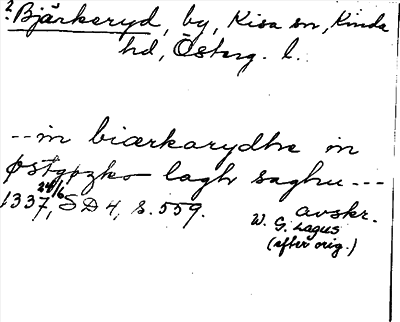 2. Bjärkeryd, by, Kisa sn, Kinda
hd, Österg. l.
--in biærkarydhe in
østgøzko laghsaghu---
1337 24/6, SD4, s. 559.
avskr.
W. G. Lagus
(efter orig.)